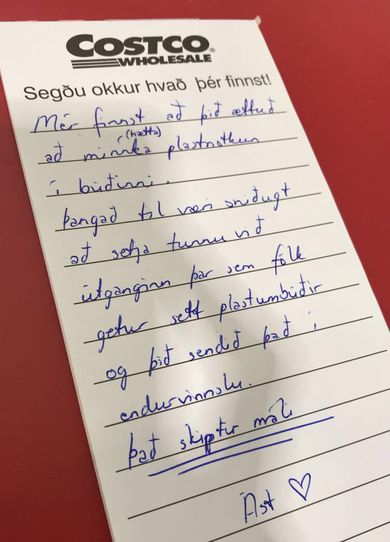 COSTCO
WHOLESALE
Segðu okkur hvað þér finnst!
Mér finnst að þið ættuð
(hætta)
að minnka plastnotkun
í búðinni.
Þangað til væri sniðugt
að setja tunnu við
útganginn þar sem fólk
getur sett plastumbúðir
og þið sendið það í
endurvinnslu.
Það skiptir máli
Ást ♡